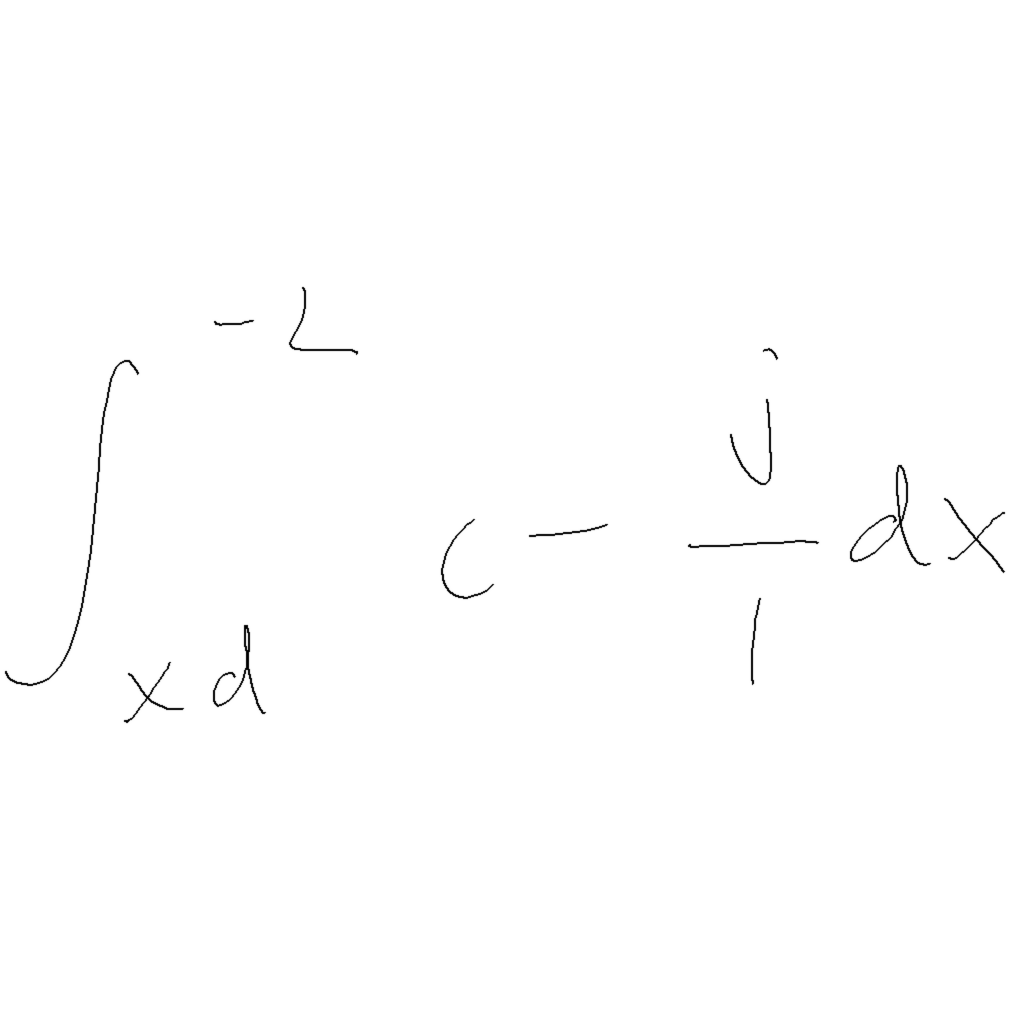 \int_{xd}^{-L} c - \frac{j}{1} dx